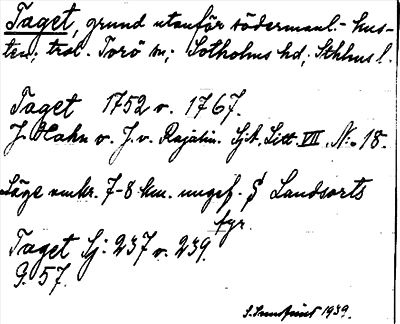 Taget, grund utanför södermanl.- kus-
ten; trol. Torö sn; Sotholms hd; Sthlms l.
Taget 1752 o. 1767.
J. Hahn o. J. v. Rajalin. Sjk. Litt. VII, No. 18.
Läge omkr. 7-8 km. ungef. § Landsorts
fyr.
Taget Sj: 237 o. 239.
S. 57.
1939.